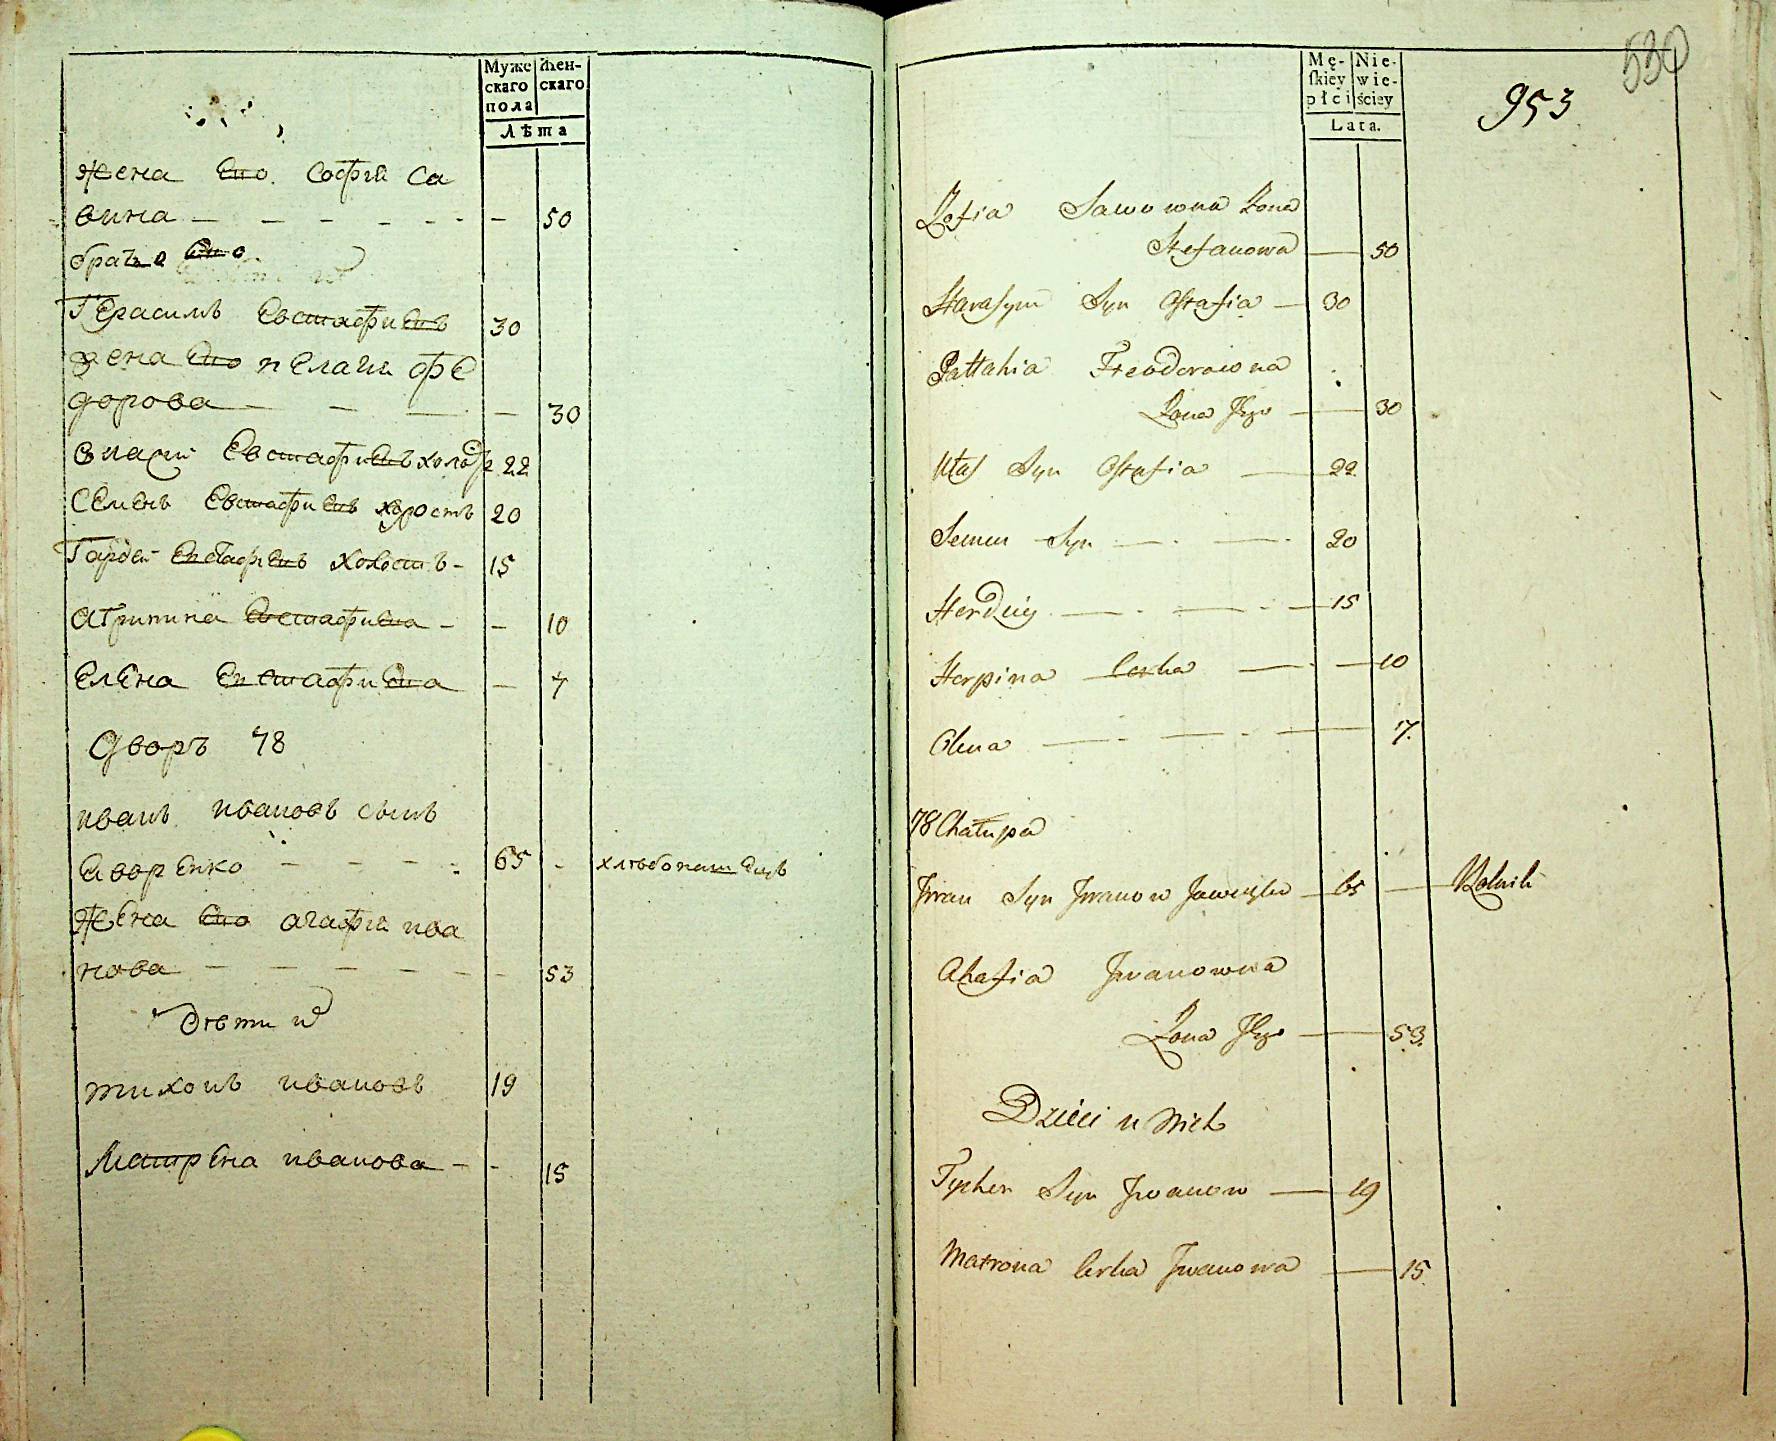 Муже
скаго
пола
Жен-
скаго
Лѣта
жена Ево Софїя Са
вина — — — — — - — 50
братъ Ево
Герасимъ Евстафиевъ 30
жена Ево пелагия фе
дорова — — — — 30
Евстафиевъ 22
Семенъ Евстафиевъ холостъ 20
Гордей Евстафиевъ холостъ - 15
Агрипина Евстафиева - — 10
Елена Евстафиева — 7
Дворъ 78
иванъ ивановъ сынъ
Яворенко — — — - 65 - хлебопашецъ
Жена Ево агафїя ива
нова — — — — — — 53
Дѣти их
тихонъ ивановъ 19
Матрена иванова - - 15
Mę-
skiey
płci
Nie-
wie-
ściey
Lata.
530
953
Zofia Sawowna Żona
Stefanowa — 50
Harasym Syn Ostafia — 30
Pałłahia Fteodorowna
Żona Jego — 30
Ułas Syn Ostafia — 22
Semen Syn — - — - 20
Herdziey — - — - — 15
Horpina Corka — - — 10
Olena — - — - — 7.
78 Chałupa
Jwan Syn Jwanow — 65 — Rolnik
Ahafia Jwanowna
Żona Jego — 53.
Dzieci u Nich
Tychon Syn Jwanow — 19
Matrona Corka Jwanowa — 15.